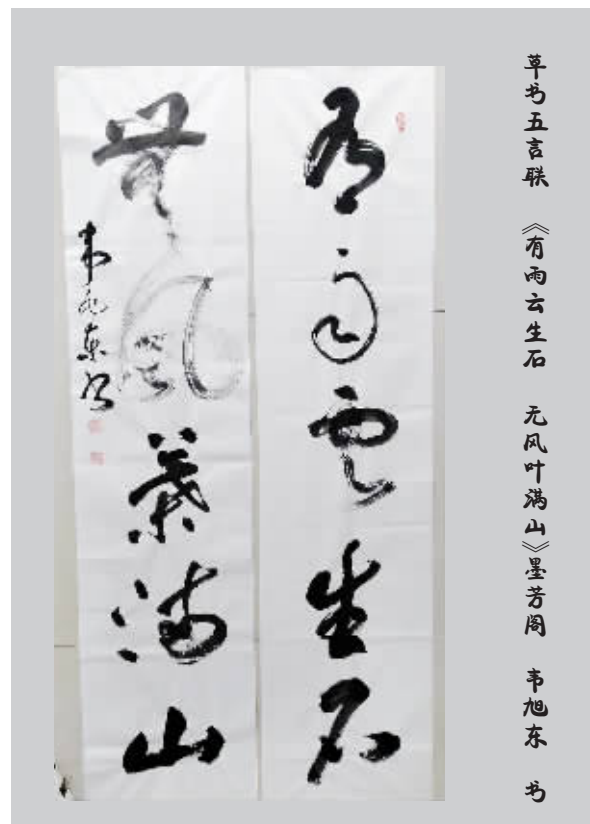 草书五言联 《有雨云生石 无风叶满山》墨芳阁 韦旭东 书
有雨雲生石
無風葉满山
韦旭东书